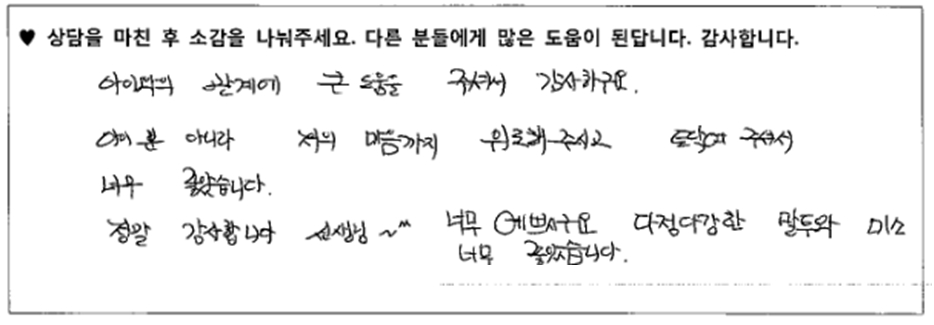 ♥ 상담을 마친 후 소감을 나눠주세요. 다른 분들에게 많은 도움이 된답니다. 감사합니다.
아이와의 관계에 큰 도움을 주셔서 감사하구요.
아이 뿐 아니라 저의 마음까지 위로해주시고 토닥여 주셔서
너무 좋았습니다.
정말 감사합니다 선생님 ~^^ 너무 예쁘시구요 다정다감한 말투와 미소
너무 좋았습니다.